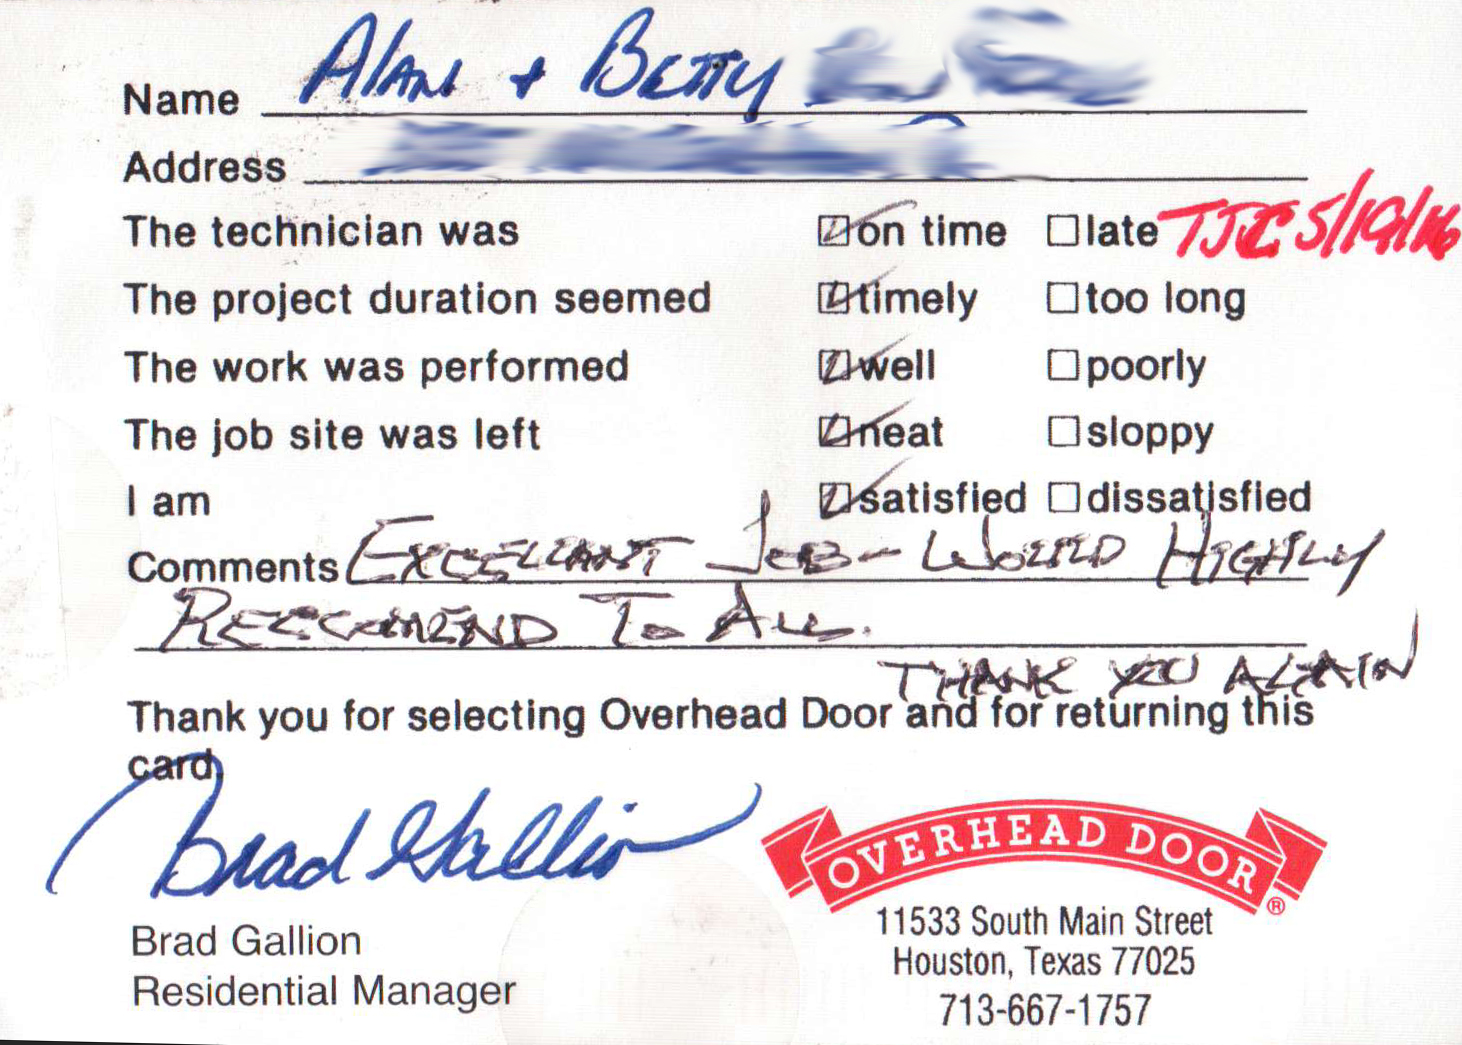 Name Alan + Betty
Address
The technician was on time late TJC 5/19/16
The project duration seemed timely too long
The work was performed well poorly
The job site was left neat sloppy
I am satisfied dissatisfied
Comments EXCELLANT JOB - WOULD HIGHLY
RECCOMEND TO ALL.
THANK YOU AGAIN
Thank you for selecting Overhead Door and for returning this
card.
Brad Gallion
OVERHEAD DOOR®
Brad Gallion
Residential Manager
11533 South Main Street
Houston, Texas 77025
713-667-1757